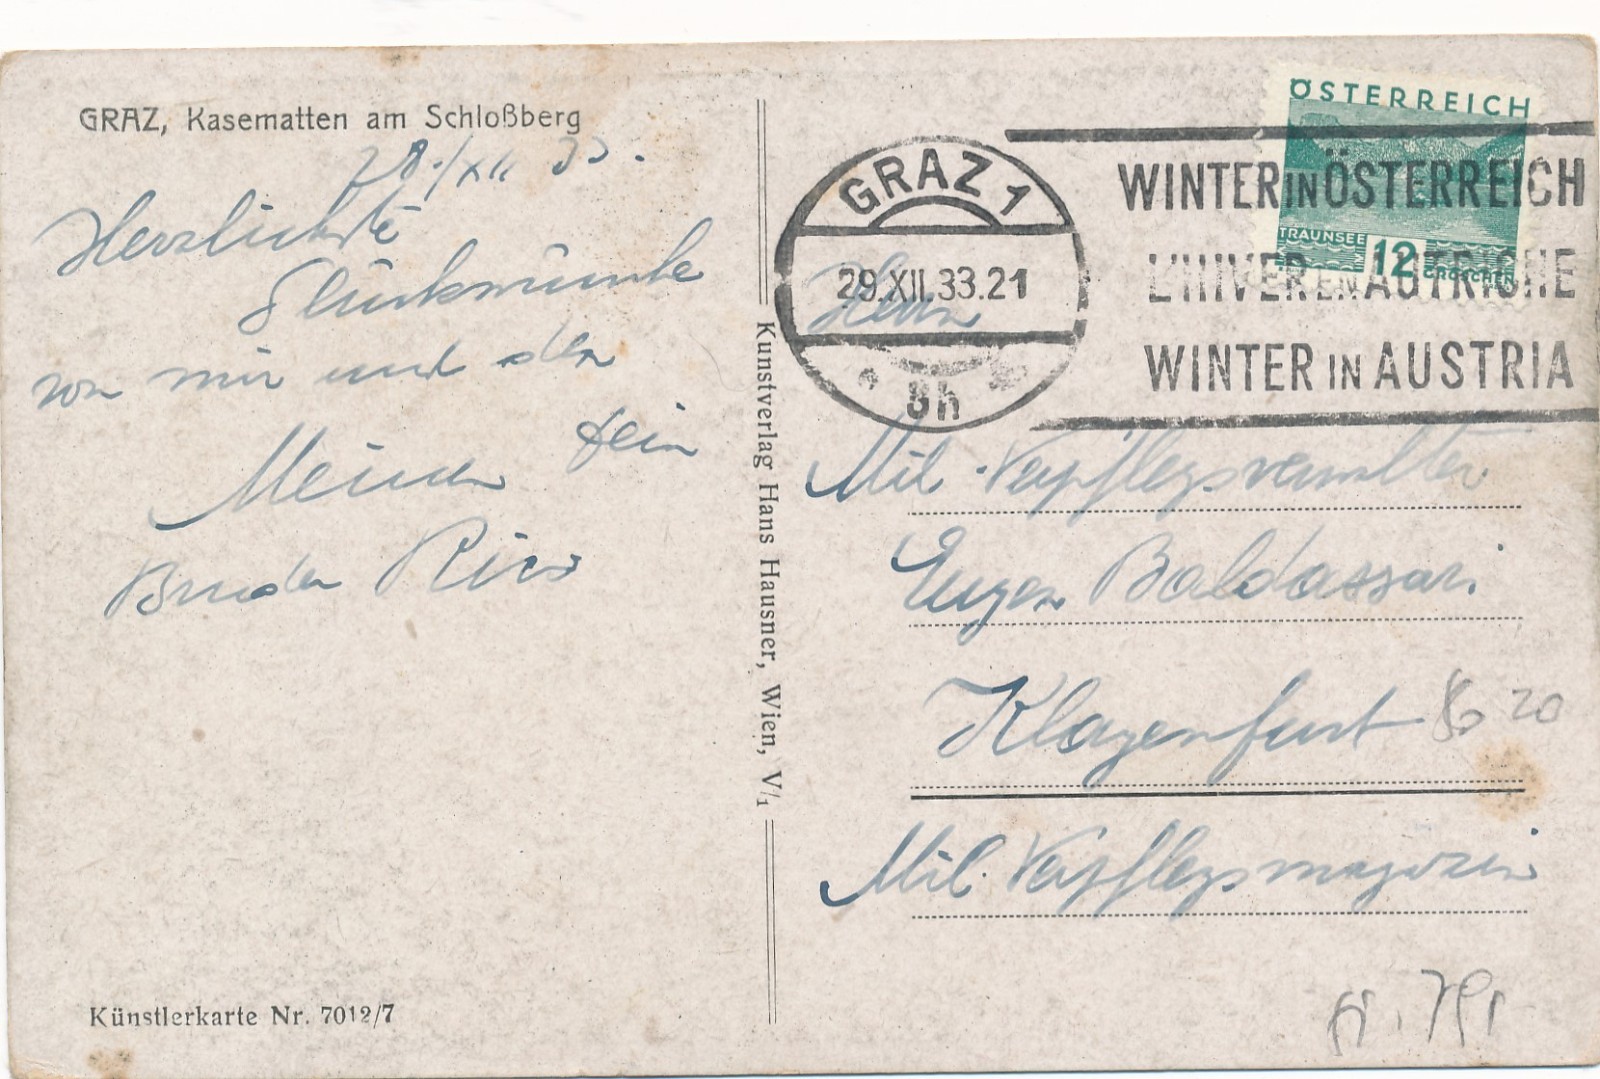 GRAZ, Kasematten am Schloßberg
28./XII 33.
Herzlichste
Glückwünsche
von mir und den
Meinen Dein
Bruder Rico
Künstlerkarte Nr. 7012/7
Kunstverlag Hans Hausner, Wien, V/1
GRAZ 1
29.XII.33.21
8h
WINTER IN ÖSTERREICH
L'HIVER EN AUTRICHE
WINTER IN AUSTRIA
ÖSTERREICH
TRAUNSEE 12 GROSCHEN
Herrn
Mil. Verpflegsverwalter
Eugen Baldassari
Klagenfurt
20
Mil. Verpflegsmagazin